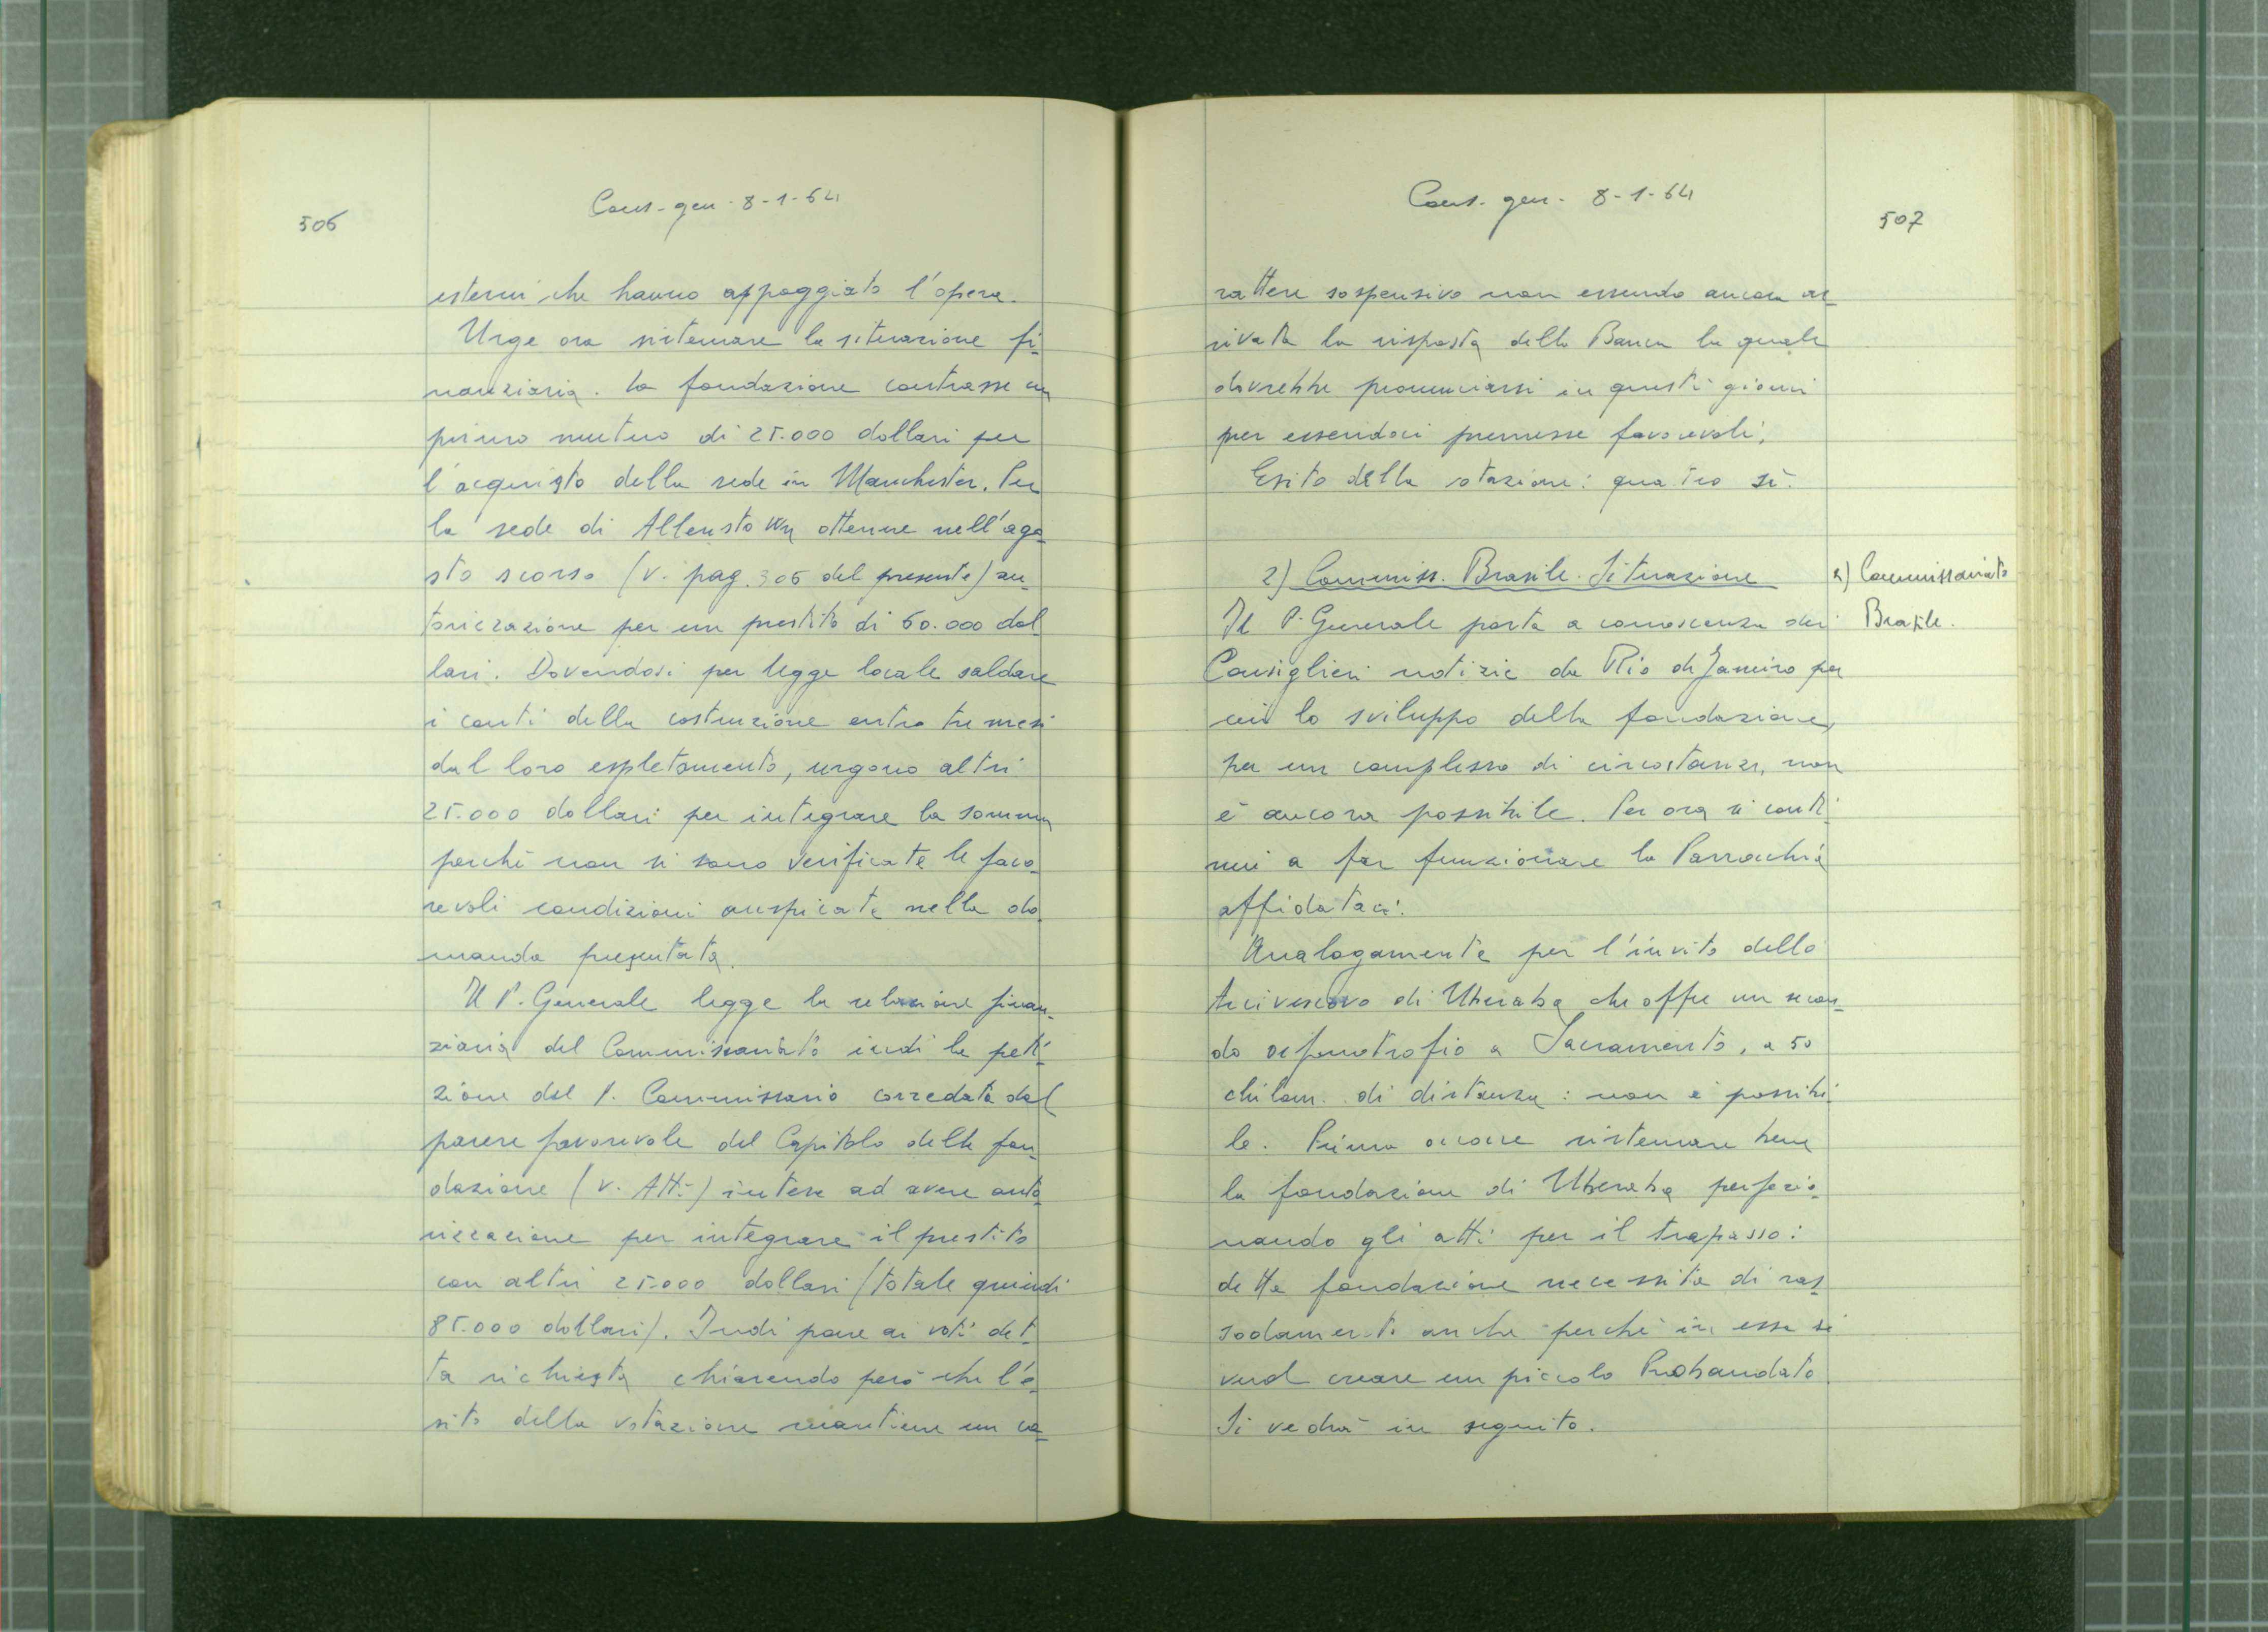 506
Cons. gen. 8-1-64
esterni che hanno appoggiato l'opera.
Urge ora sistemare la situazione fi-
nanziaria. La fondazione contrasse un
primo mutuo di 25.000 dollari per
l'acquisto della sede in Manchester. Per
la sede di Allenstown ottenne nell'ago-
sto scorso (v. pag. 306 del presente) au-
torizzazione per un prestito di 60.000 dol-
lari. Dovendosi per legge locale saldare
i conti della costruzione entro tre mesi
dal loro espletamento, urgono altri
25.000 dollari per integrare la somma
perchè non si sono verificate le favo-
revoli condizioni auspicate nella do-
manda presentata.
Il P. Generale legge la relazione finan-
ziaria del Commissariato indi la peti-
zione del P. Commissario corredata dal
parere favorevole del Capitolo della fon-
dazione (v. Atti) intese ad avere auto-
rizzazione per integrare il prestito
con altri 25.000 dollari (totale quindi
85.000 dollari). Indi pone ai voti det-
ta richiesta chiarendo però che l'e-
sito della votazione mantiene un ca-
Cons. gen. 8-1-64
507
rattere sospensivo non essendo ancora ar-
rivata la risposta della Banca la quale
dovrebbe pronunciarsi in questi giorni
pur essendoci premesse favorevoli.
Esito della votazione: quattro sì.
2) Commiss. Brasile. Situazione
2) Commissariato
Brasile.
Il P. Generale porta a conoscenza dei
Consiglieri notizie da Rio de Janeiro per
cui lo sviluppo della fondazione,
per un complesso di circostanze, non
è ancora possibile. Per ora si conti-
nui a far funzionare la Parrocchia
affidataci.
Analogamente per l'invito dello
Arcivescovo di Uberaba che offre un secon-
do orfanotrofio a Sacramento, a 50
chilom. di distanza: non è possibi-
le. Prima occorre sistemare bene
la fondazione di Uberaba perfezio-
nando gli atti per il trapasso:
detta fondazione necessita di ras-
sodamento anche perchè in essa si
vuol creare un piccolo Probandato.
Si vedrà in seguito.